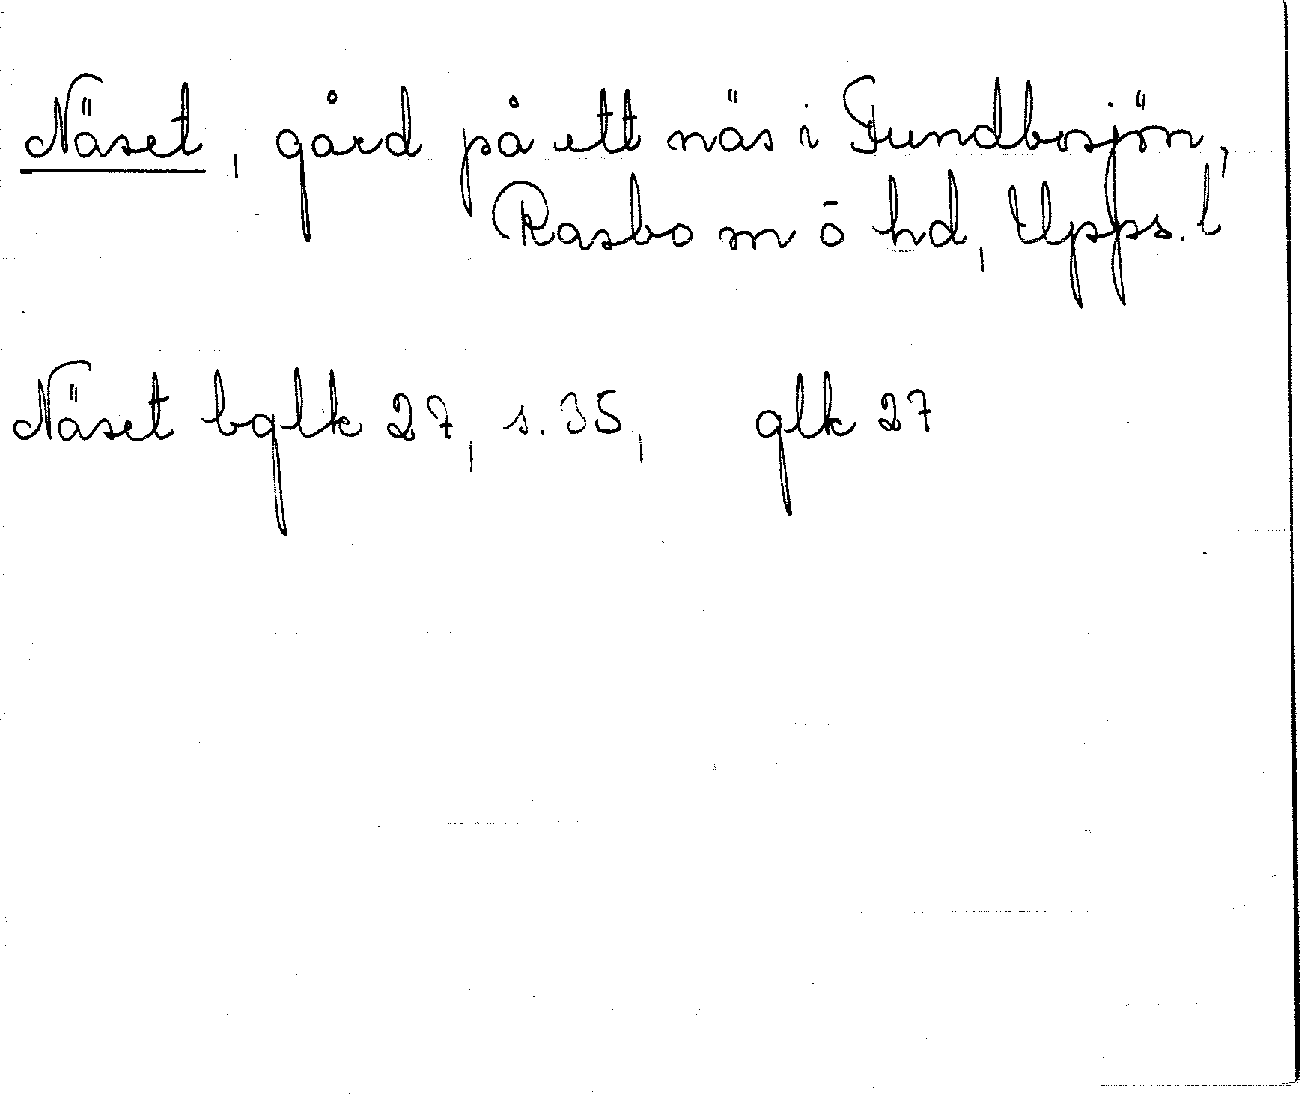 Näset, gård på ett näs i Fundbosjön,
Rasbo m ö hd, Upps. l
Näset bglk 27, s. 35, glk 27